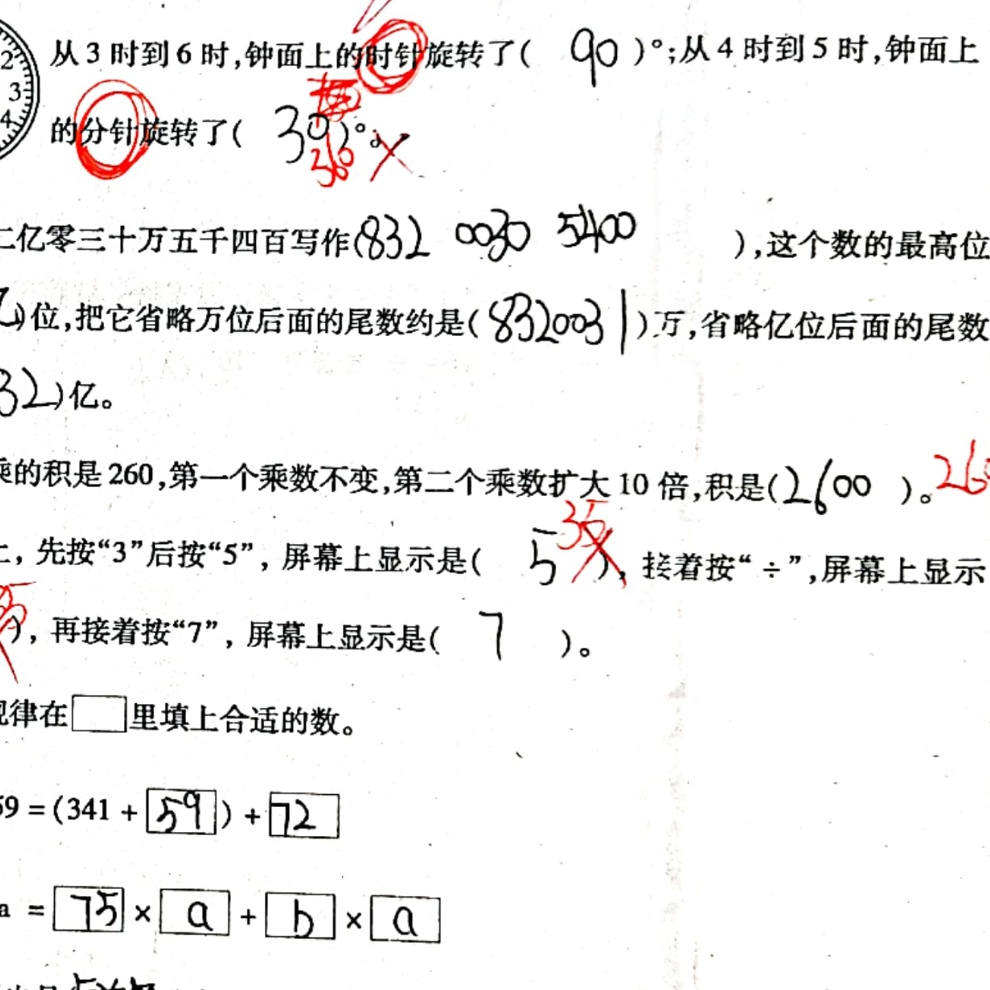 2
3
4
从3时到6时,钟面上的时针旋转了( 90 )°;从4时到5时,钟面上
的分针旋转了( 30 )°。
360
二亿零三十万五千四百写作(832 0030 5400 ),这个数的最高位
亿)位,把它省略万位后面的尾数约是( 8320031 )万,省略亿位后面的尾数
32)亿。
乘的积是260,第一个乘数不变,第二个乘数扩大10倍,积是(2600 )。
上,先按“3”后按“5”,屏幕上显示是( 5 ),接着按“÷”,屏幕上显示
35
),再接着按“7”,屏幕上显示是( 7 )。
规律在□里填上合适的数。
59=(341+59)+72
a=75×a+b×a